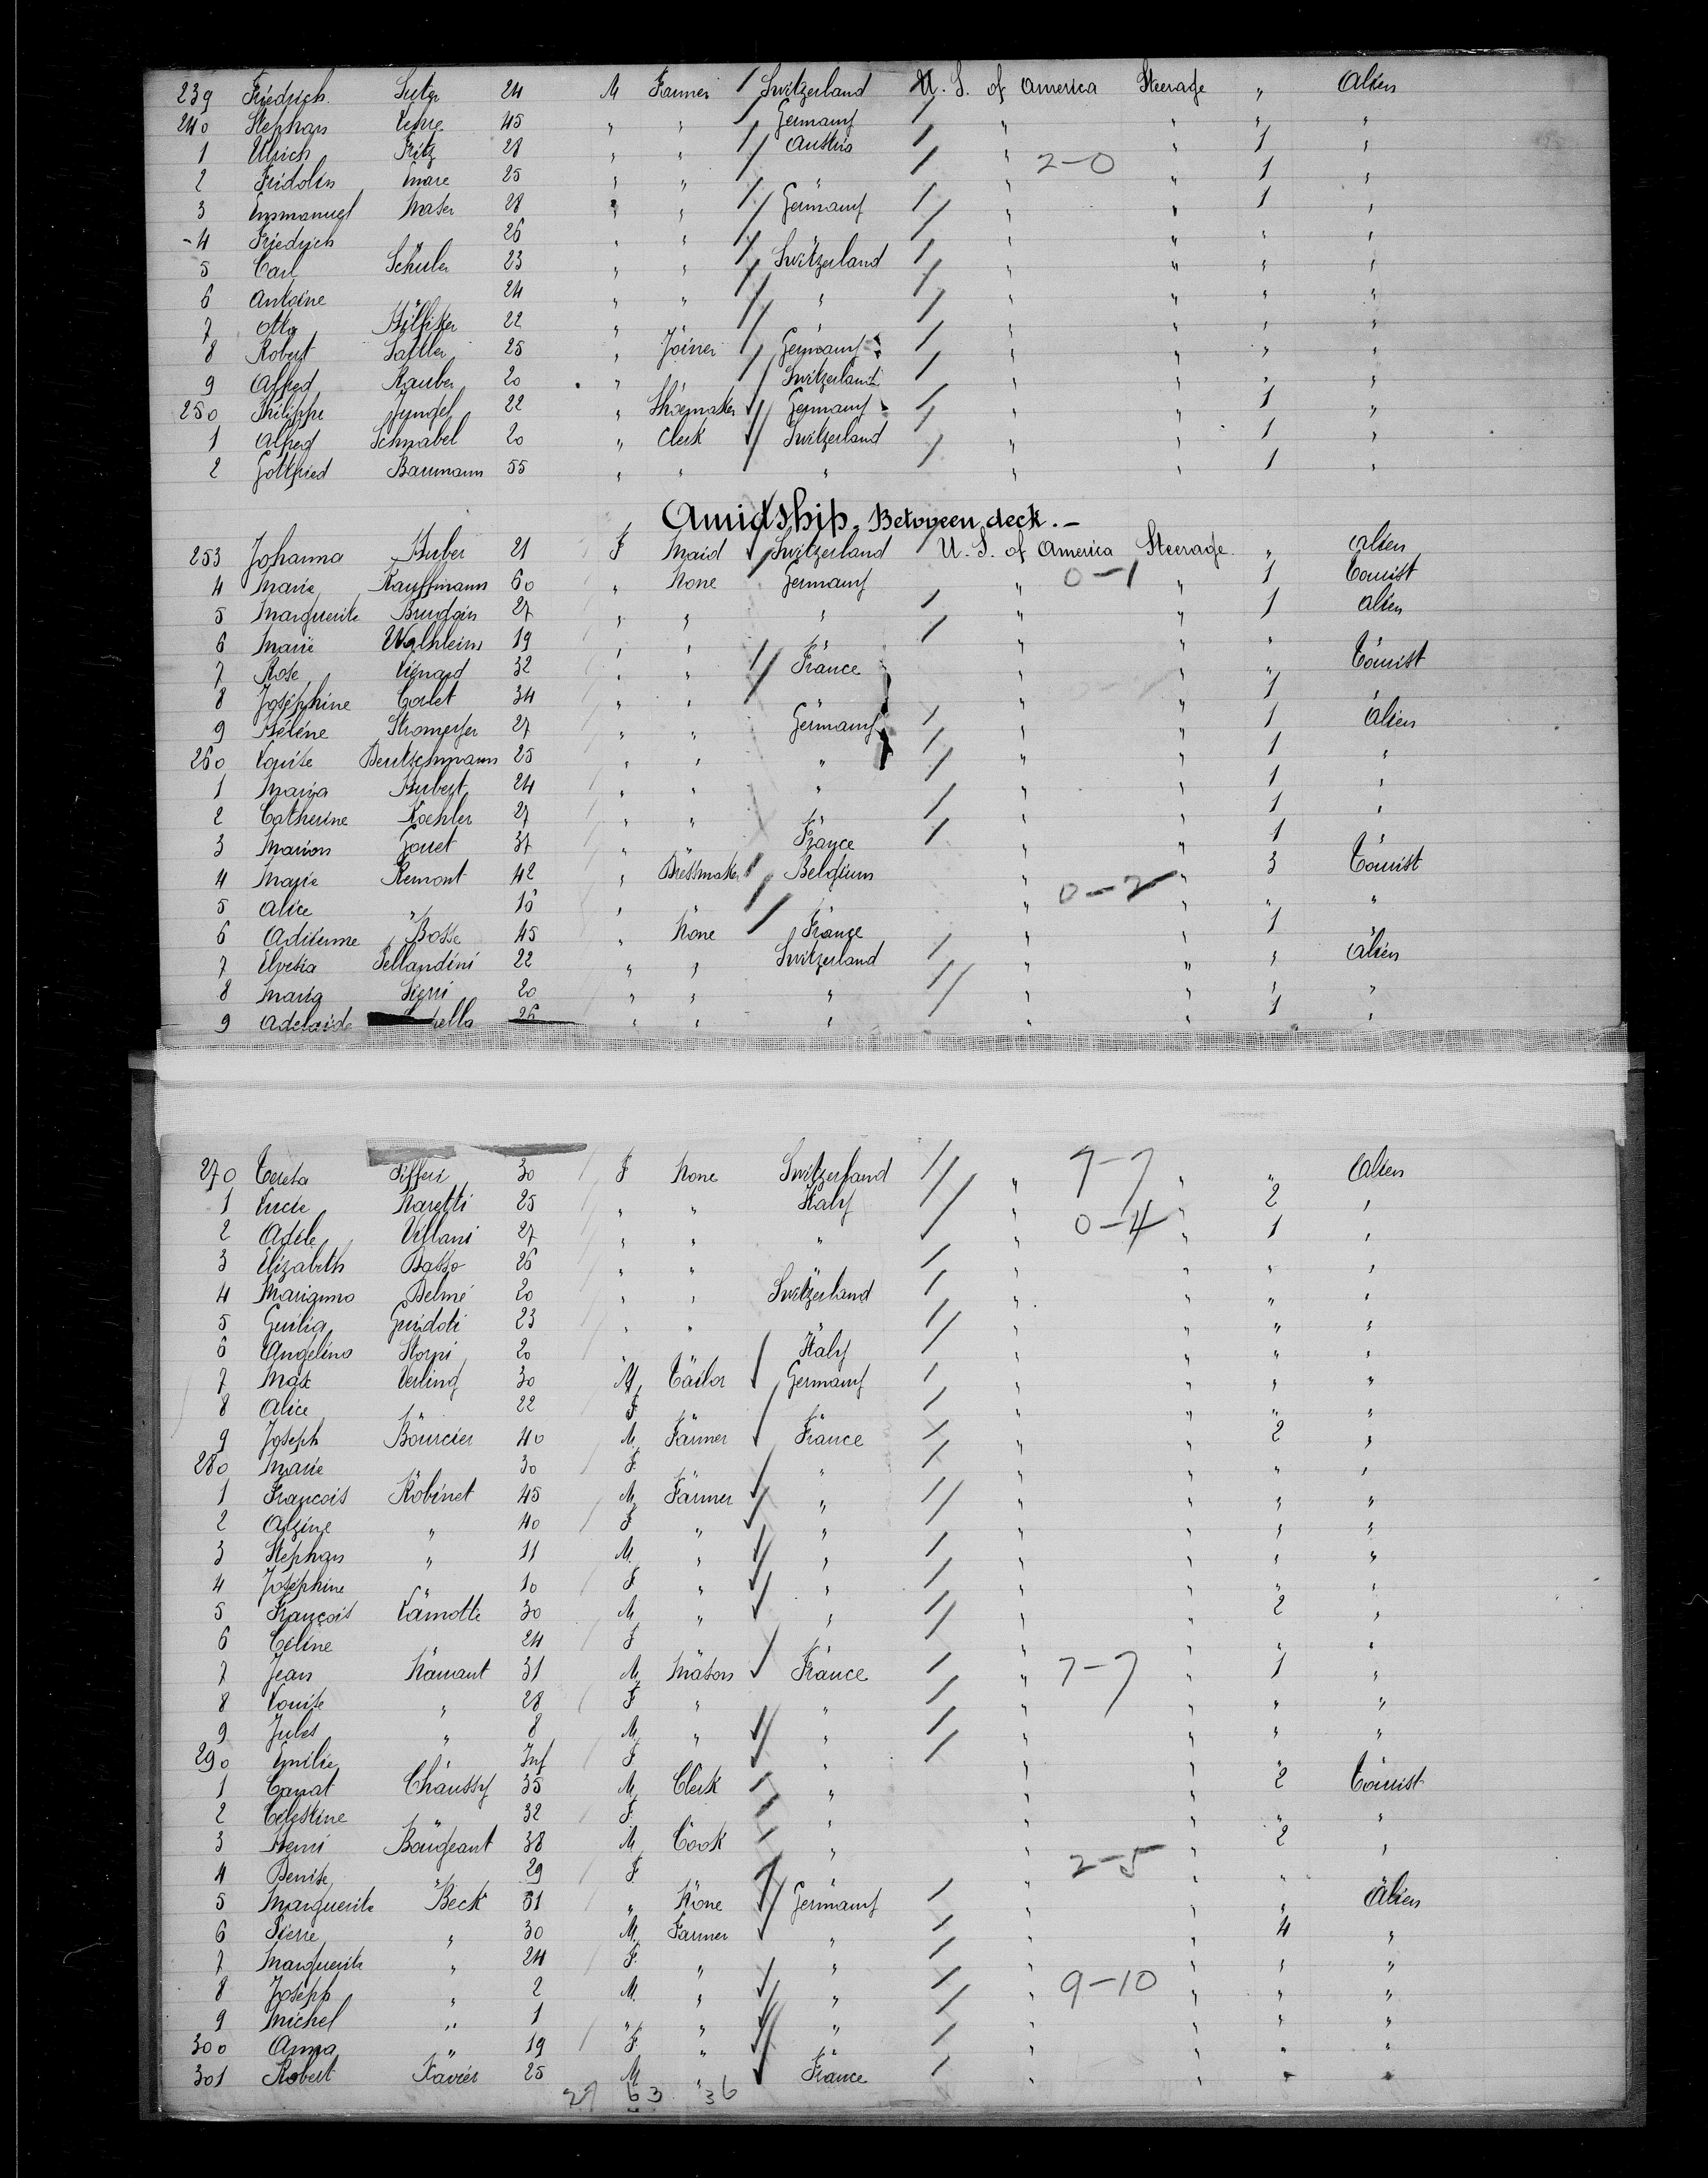 239 Friedrich Suter 24 M Farmer Switzerland U. S. of America Steerage " Alien
240 Stephan 45 " " Germany " " " "
1 Ulrich Fritz 28 " " Austria " " 1 "
2 Fridolin Mare 25 " " " " 2-0 " 1 "
3 Emmanuel Maser 28 " " Germany " " 1 "
4 Friedrich " 26 " " " " " " "
5 Carl Schuler 23 " " Switzerland " " " "
6 Antoine " 24 " " " " " " "
7 Otto Hilfiker 22 " " " " " "
8 Robert Sattler 25 " Joiner Germany " " " "
9 Alfred Rauber 20 " " Switzerland " " " "
250 Philippe Jungel 22 " Shoemaker Germany " " 1 "
1 Alfred Schnabel 20 " Clerk Switzerland " " 1 "
2 Gottfried Baumann 55 " " " " " 1 "
Amidship. Between deck. -
253 Johanna Huber 21 F Maid Switzerland U. S. of America Steerage " Alien
4 Marie Kauffmann 60 " None Germany " 0-1 " 1 Tourist
5 Marguerite 27 " " " " " 1 Alien
6 Marie Walhleim 19 " " " " " " "
7 Rose Vienard 32 " " France " " " Tourist
8 Joséphine Colet 34 " " " " " 1 "
9 Hélène Stromeyer 27 " " Germany " " 1 Alien
260 Louise Deutschmann 25 " " " " " 1 "
1 Maria Hubert 24 " " " " " 1 "
2 Catherine Koehler 27 " " " " " 1 "
3 Marion Goret 37 " " France " " 1 "
4 Marie Remont 42 " Dressmaker Belgium " " 3 Tourist
5 Alice " 16 " " " " 0-2 " " "
6 Adrienne Bosse 45 " None France " " 1 "
7 Elvesia Pellandini 22 " " Switzerland " " " Alien
8 Maria 20 " " " " " " "
9 Adelaide 26 " " " " " 1 "
270 Teresa Pifferi 30 F None Switzerland " 7-7 " " Alien
1 Lucie Naretti 25 " " Italy " " 2 "
2 Adèle Villani 27 " " " " 0-4 " 1 "
3 Elizabeth Basso 26 " " " " " " "
4 Marianna Delmé 20 " " Switzerland " " " "
5 Guilia Guidoti 23 " " " " " " "
6 Angelina Storni 20 " " Italy " " " "
7 Max Verling 30 M Tailor Germany " " " "
8 Alice " 22 F " " " " " "
9 Joseph Bourcier 40 M Farmer France " " 2 "
280 Marie " 30 F " " " " " "
1 François Robinet 45 M Farmer " " " " "
2 Alzine " 40 F " " " " " "
3 Stephan " 11 M " " " " " "
4 Joséphine " 10 F " " " " " "
5 François Lamotte 30 M " " " " 2 "
6 Céline " 24 F " " " " " "
7 Jean 31 M Mason France " 7-7 " 1 "
8 Louise " 28 F " " " " " "
9 Jules " 8 M " " " " " "
290 Emilie " Inf F " " " " "
1 Canat Chaussy 35 M Clerk " " " 2 Tourist
2 Celestine " 32 F " " " " "
3 Henri Bougeant 38 M Cook " " " 2 "
4 Denise " 29 F " " " 2-5 " " "
5 Marguerite Beck 51 " None Germany " " " Alien
6 Pierre " 30 M Farmer " " " 4 "
7 Marguerite " 24 F " " " " " "
8 Joseph " 2 M " " " 9-10 " " "
9 Michel " 1 " " " " " " "
300 Anna " 19 F " " " " " "
301 Robert Xavier 25 M " France " " " "
27 63 36